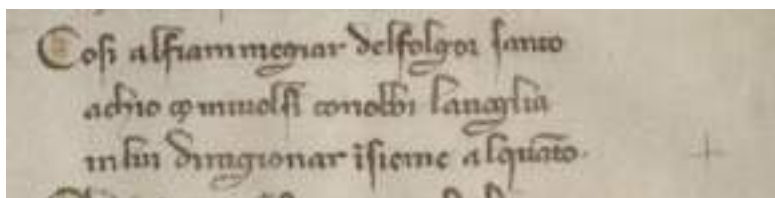 Cosi alfiammegiar delfolgor santo
achio mi uolsi conobbi lauoglia
in lui di ragionar īsieme alquāto.